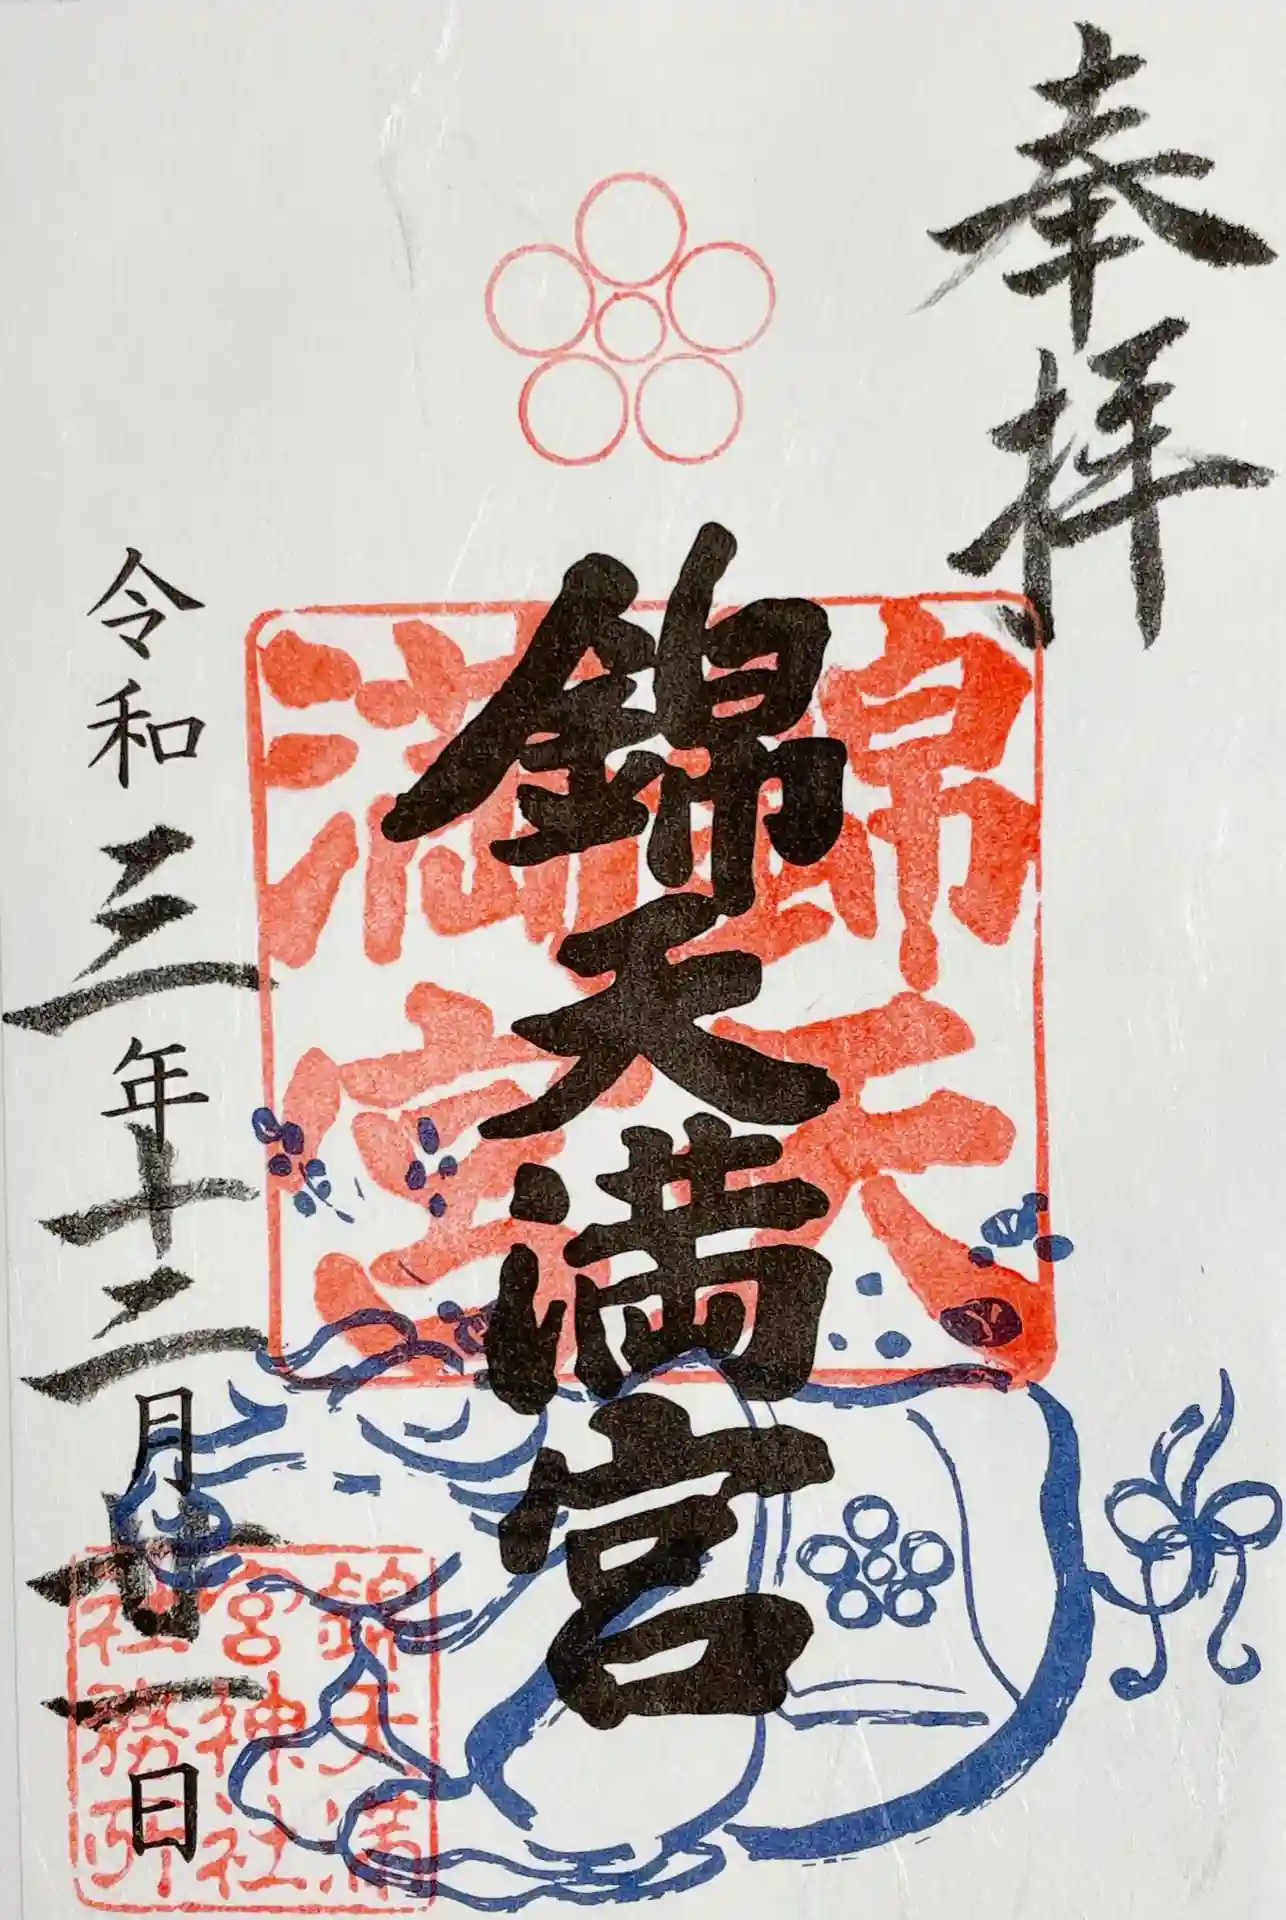 奉拝
錦天満宮
令和三年十二月廿一日
錦天
満宮
錦天満
宮神社
社務所